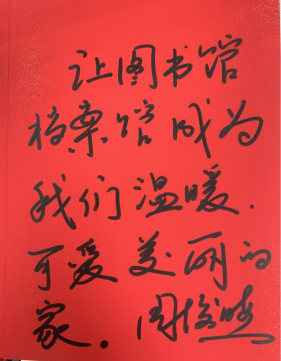 让图书馆
档案馆成为
我们温暖.
可爱美丽的
家。周俊